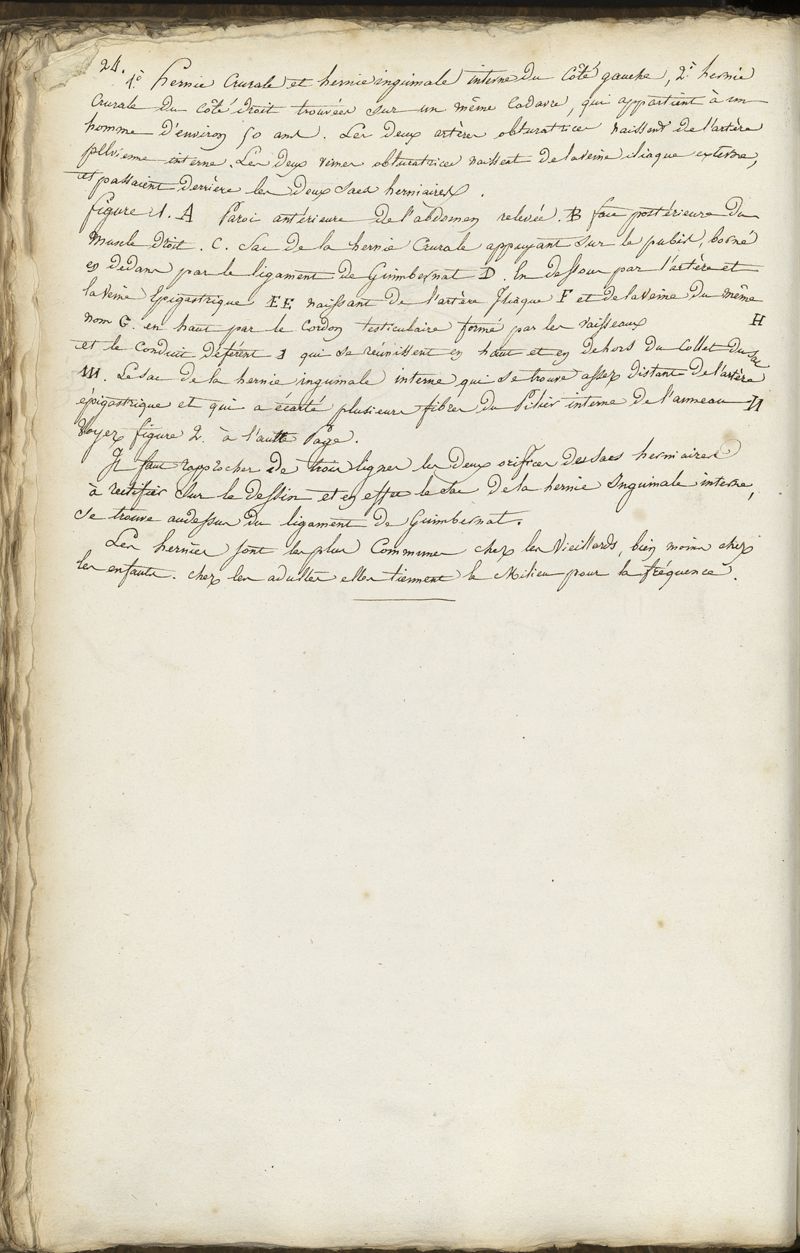 24.
1.° hernie Crurale et hernie inguinale interne du Côté gauche, 2.° hernie
Crurale du côté droit trouvées sur un même Cadavre, qui appartient à un
homme d'environ 50 ans. Les deux artères obturatrices naissent de l'artère
pelvienne interne. Les deux veines obturatrices naissent de la veine iliaque externe,
et passaient derrière les deux sacs herniaires.
figure 1. A Paroi antérieure de l'abdomen relevée. B face postérieure du
Muscle droit. C. Sac de la hernie Crurale appuyant sur le pubis, borné
en dedans par le ligament de Guimbernat D. En dessous par l'artère et
la veine Epigastrique EE naissant de l'artère Iliaque F et de la veine du même
nom G. en haut par le Cordon testiculaire formé par les vaisseaux H
et le Conduit déférent I qui se réunissent en haut et en dehors du Collet du sac
M. Le sac de la hernie inguinale interne qui se trouve assez distante de l'artère
épigastrique et qui a écarté plusieurs fibres du Pilier interne de l'anneau N
Voyez figure 2. à l'autre Page.
Il faut rapprocher de trois lignes les deux orifices des sacs herniaires
à rectifier sur le dessin et en effet le sac de la hernie Inguinale interne,
se trouve audessus du ligament de Guimbernat.
Les hernies sont les plus Communes chez les Vieillards, bien moins chez
les enfants. chez les adultes elles tiennent le Milieu pour la fréquence.